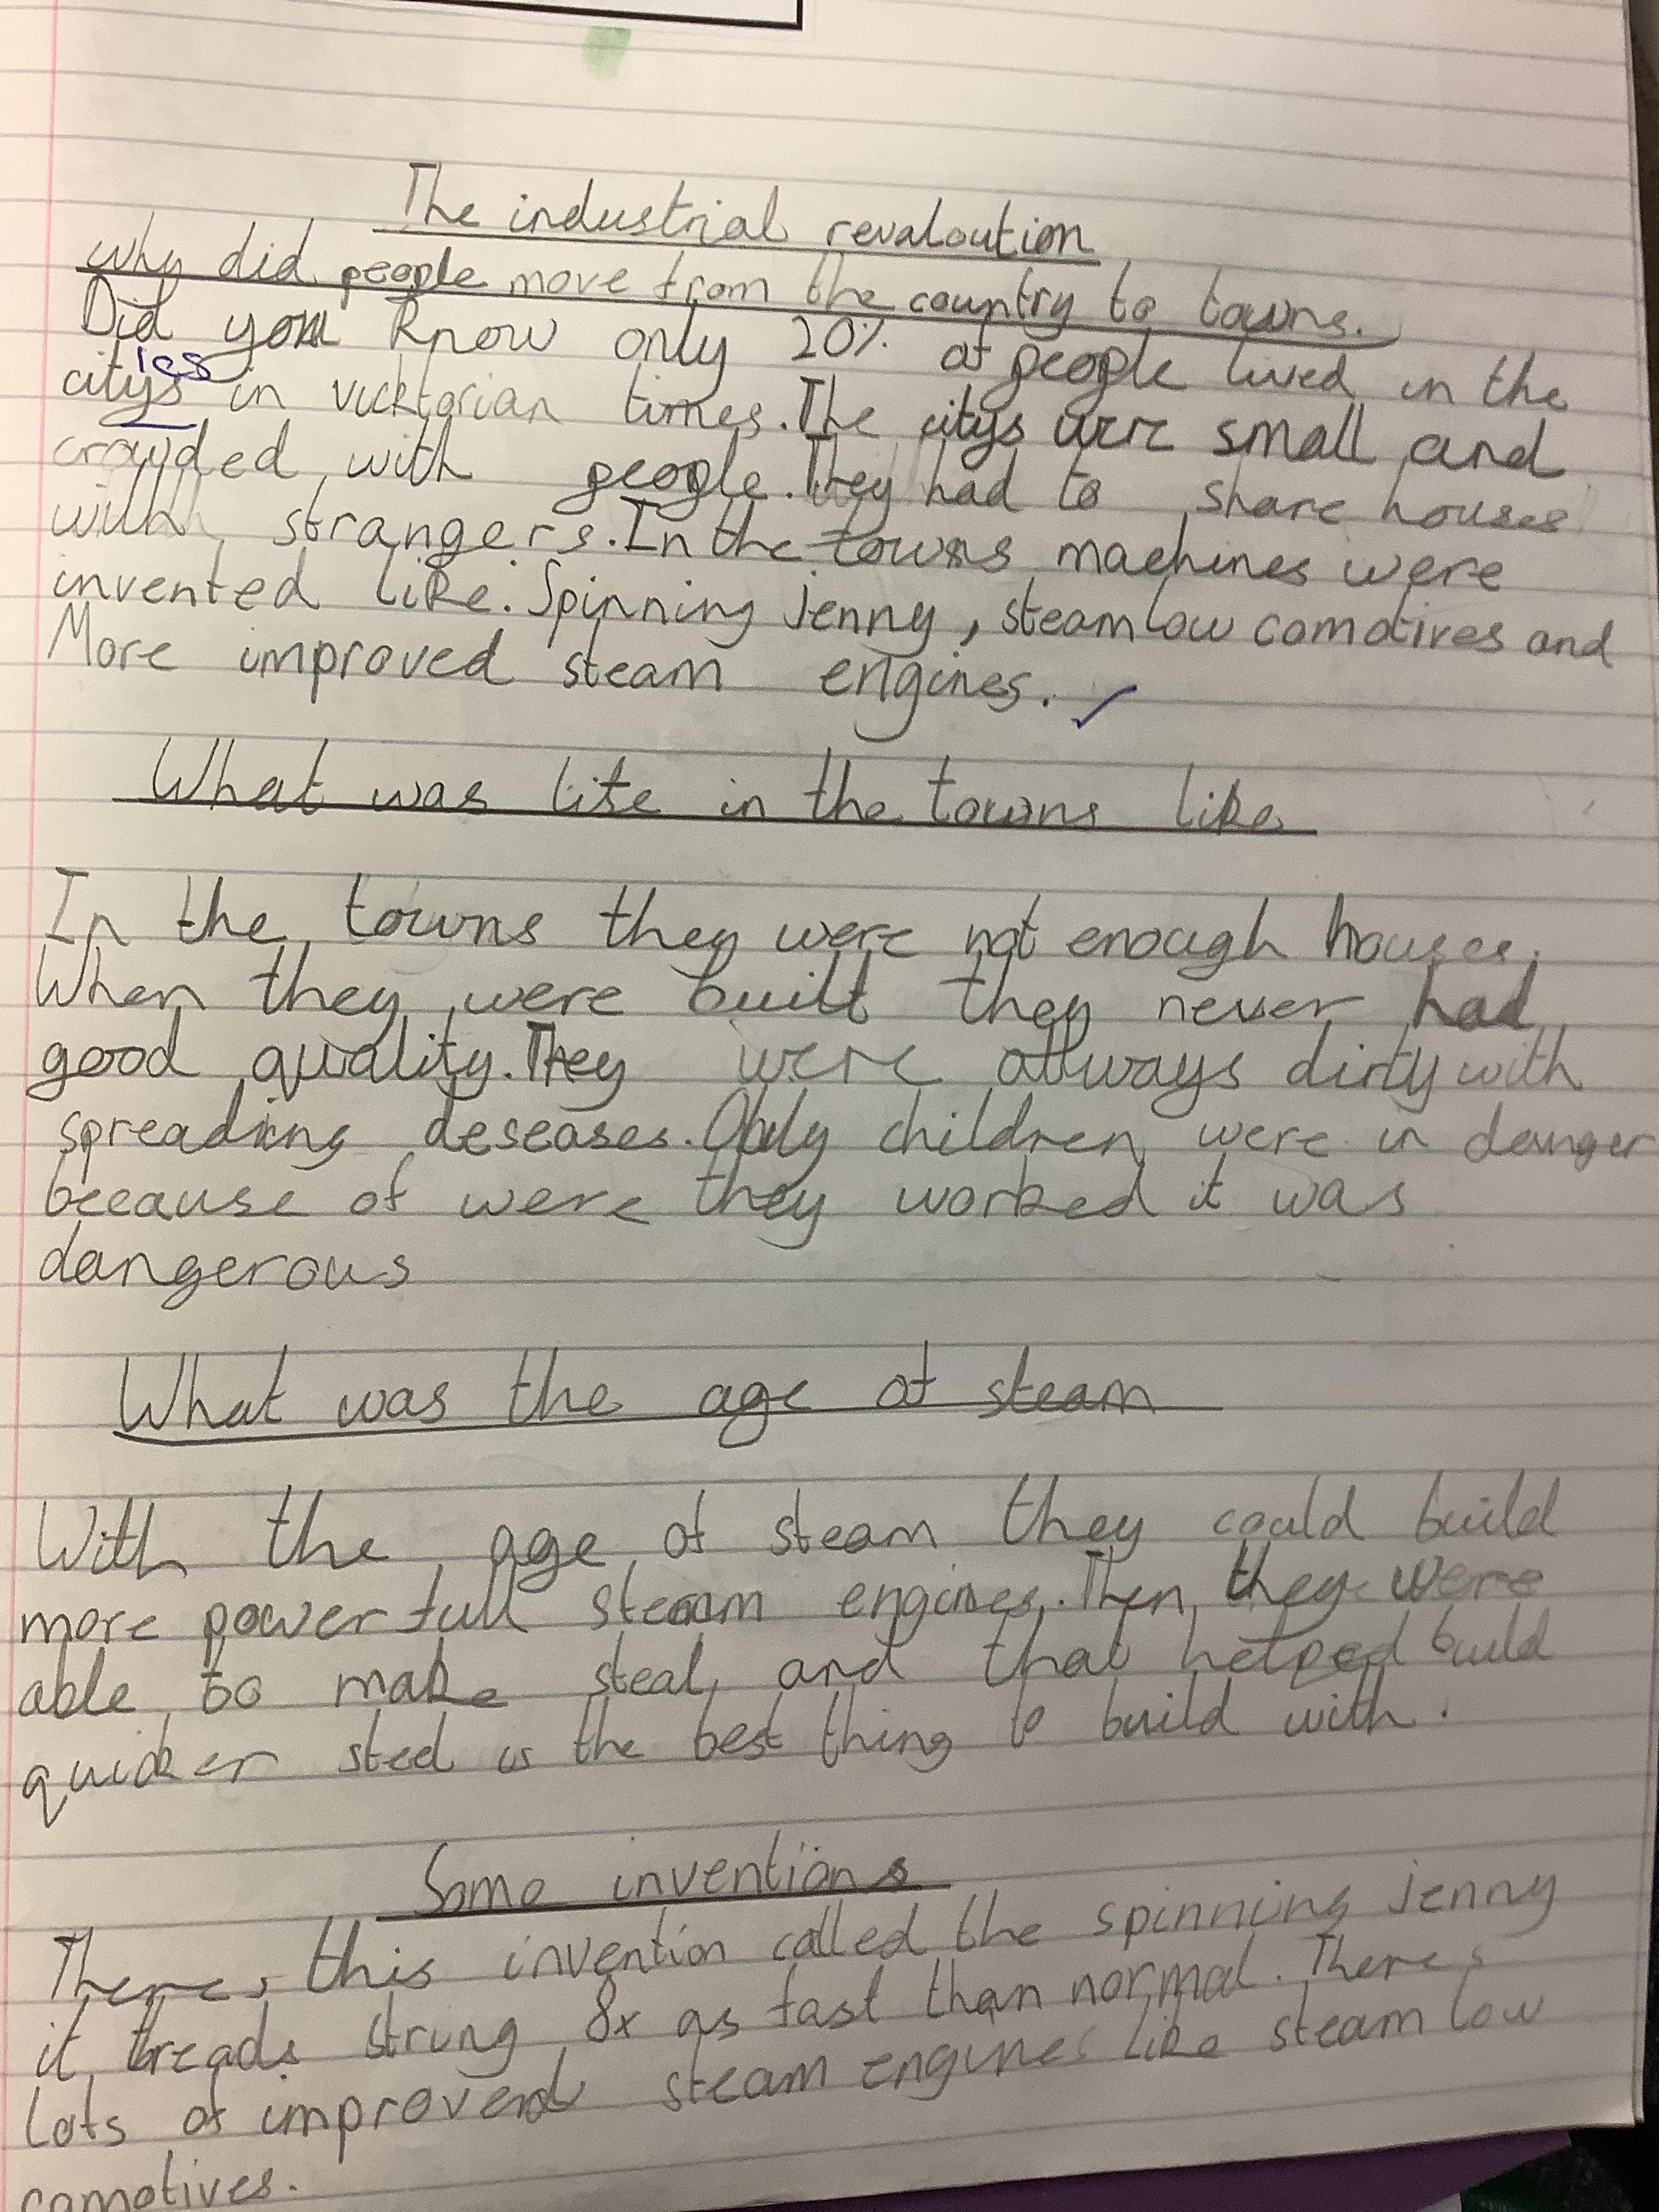 The industrial revaloution
why did people move from the country to towns.
Did you know only 20% of people lived in the
ies
citys in vicktorian times. The citys were small and
crowded with people. They had to share houses
with strangers. In the towns machines were
invented like. Spinning jenny, steam low comotives and
More improved steam engines. ✓
What was life in the towns like
In the towns they were not enough houses.
When they were built they never had
good quality. They were allways dirty with
spreading deseases. Only children were in danger
because of were they worked it was
dangerous
What was the age of steam
With the age of steam they could build
more powerfull steam engines. Then they were
able to make steal and that helped build
quicker steel is the best thing to build with.
Some inventions
There, this invention called the spinning jenny
it treads strung 8x as fast than normal. There s
lots of improved steam engines like steam low
comotives.